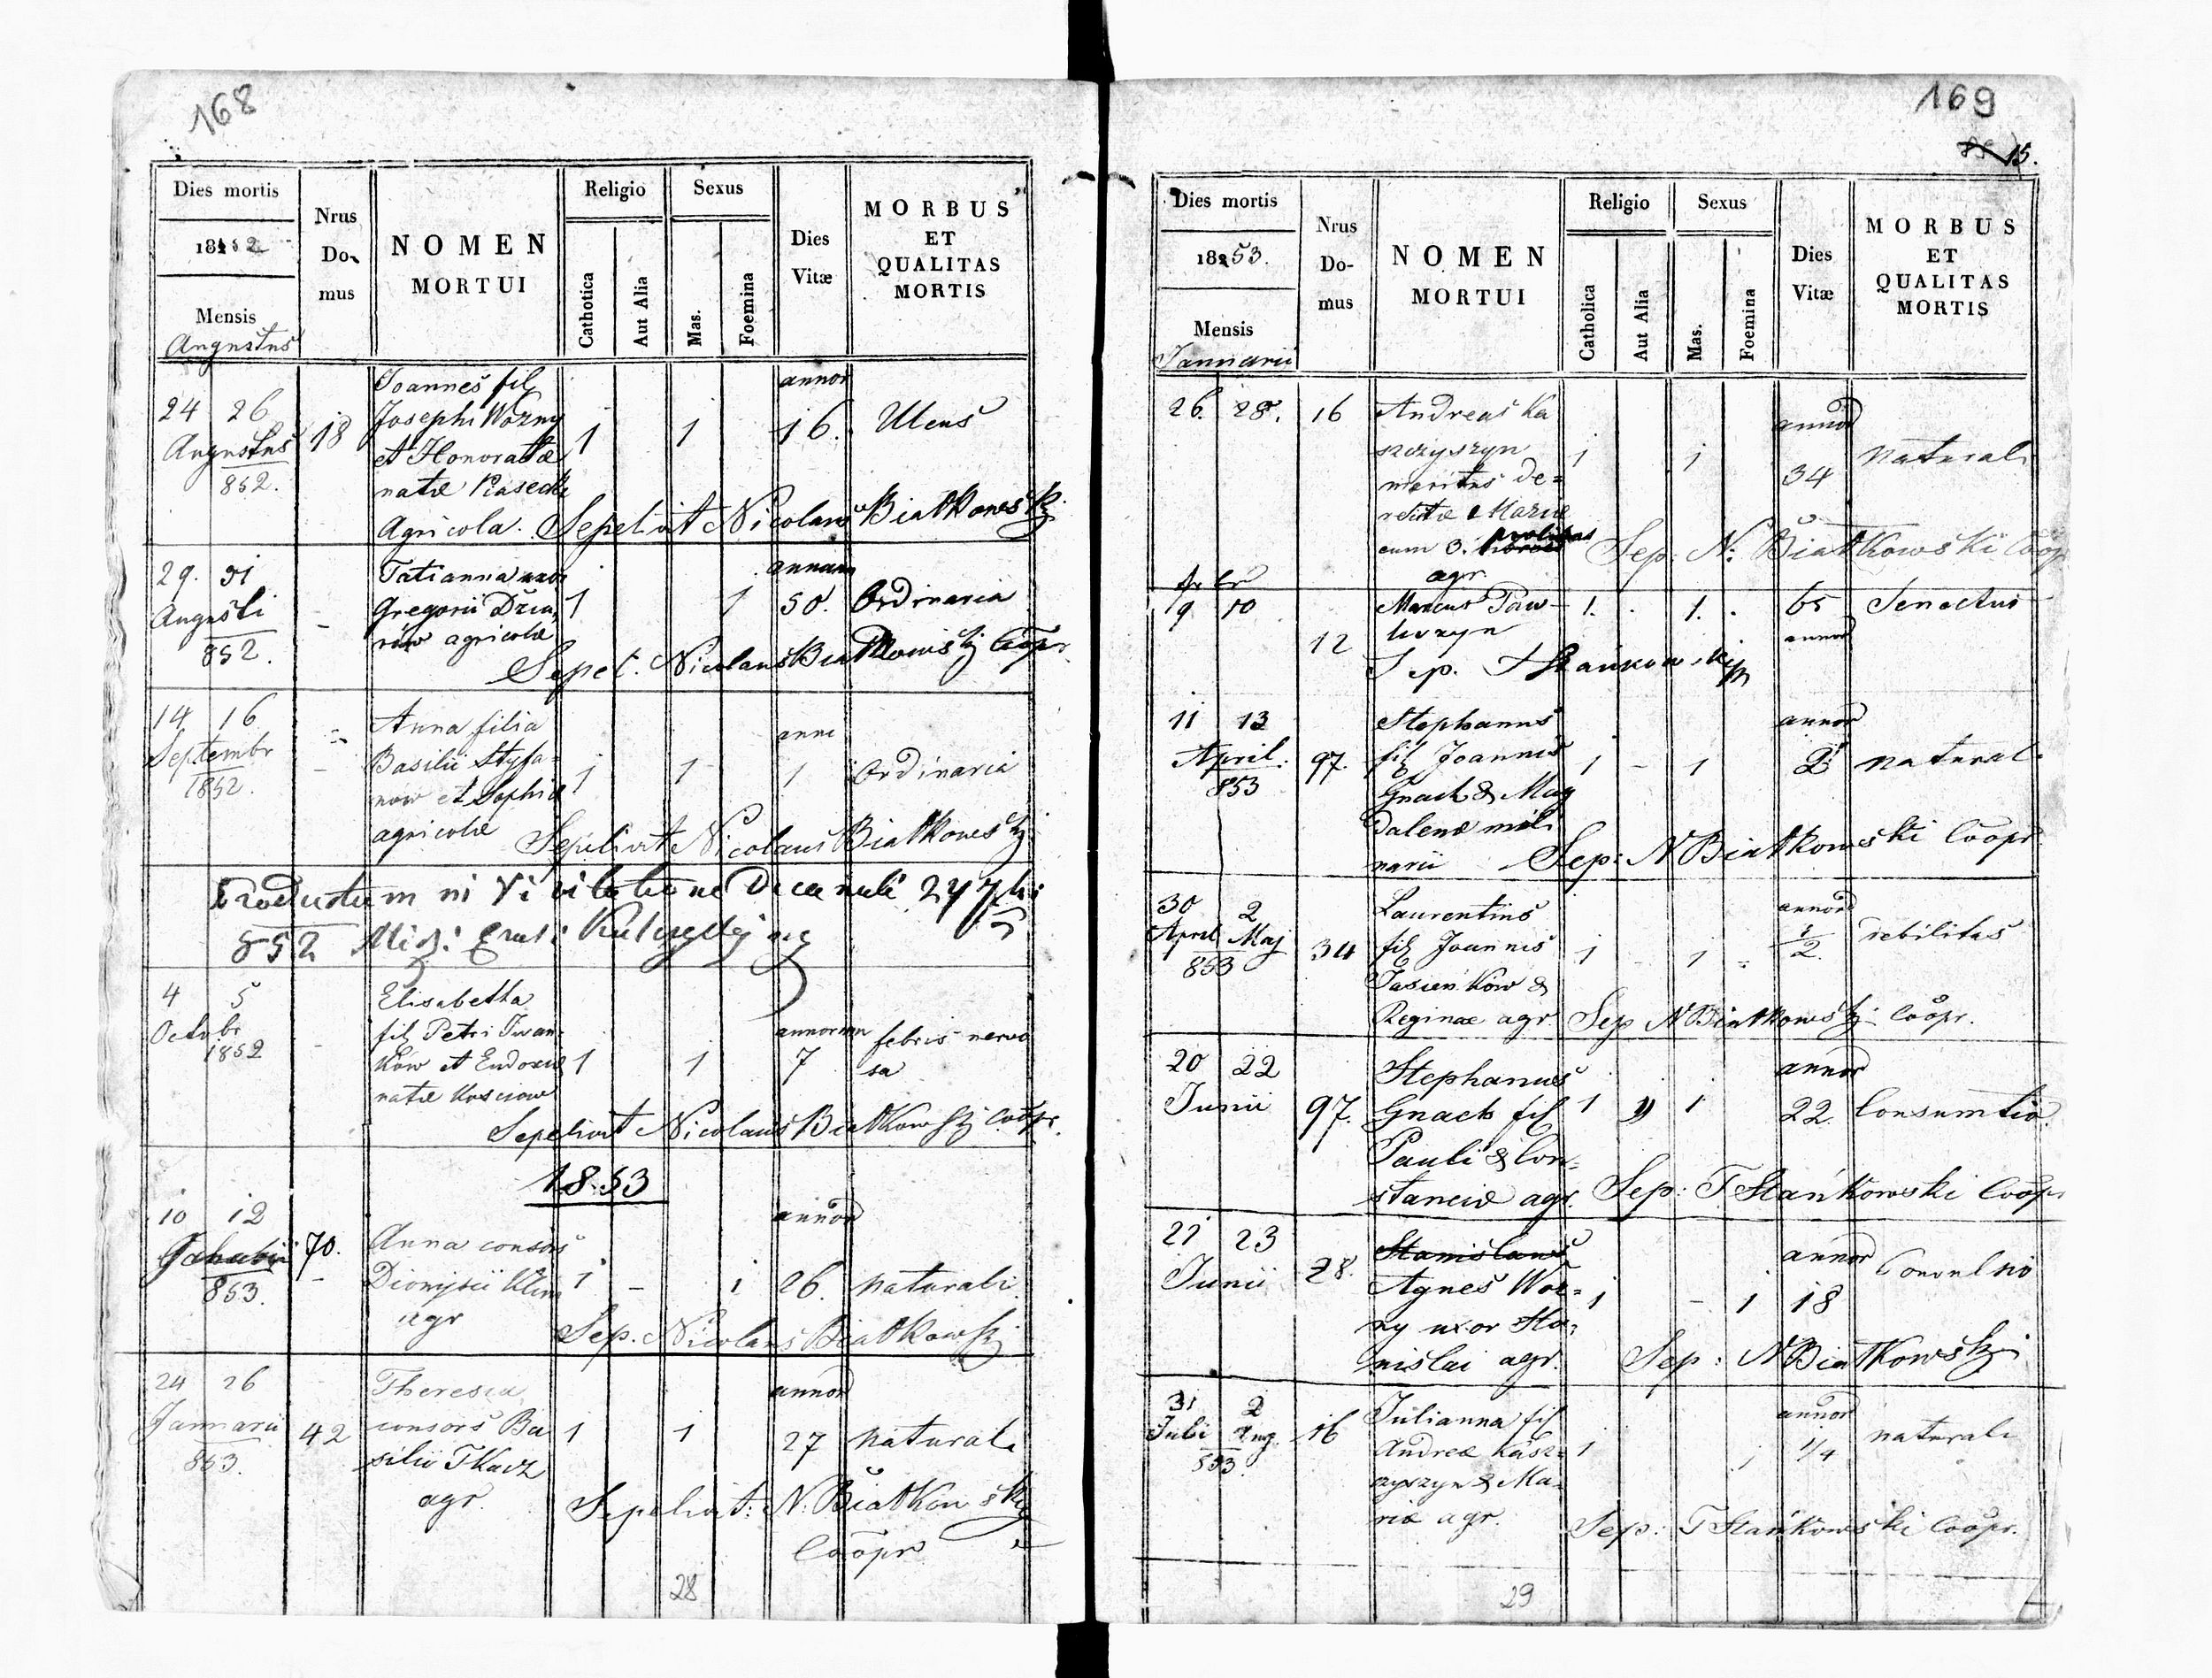 168
Dies mortis
1852
Mensis
Augustus
Nrus
Do-
mus
NOMEN
MORTUI
Religio
Cathotica
Aut Alia
Sexus
Mas.
Foemina
Dies
Vitæ
MORBUS
ET
QUALITAS
MORTIS
24 26
Augustus
852.
18
Joannes fil
Josephi Wozny
et Honoratæ
natæ Piasecka
Agricola.
1
1
annor
16.
Ulcus
Sepelivit Nicolaus Białkowski
29. 31
Augusti
852.
-
Tatianna uxor
Gregorii Dziu
rów agricolæ
1
1
annorum
50.
Ordinaria
Sepel. Nicolaus Białkowski Coopr
14 16
Septembr
1852.
-
Anna filia
Basilii Styfa-
now et Sophiæ
agricolæ
1
1
anni
1
Ordinaria
Sepelivit Nicolaus Białkowski
852
4 5
Octobr
1852
-
Elisabetha
fil Petri Iwan-
ków et Eudoxiæ
natæ Kosciow
1
1
annorum
7
febris nervo
sa
Sepelivit Nicolaus Białkowski Coopr.
1853
10 12
853.
70.
-
Anna consors
Dionysii Klim
agr
1
-
1
annor
26.
naturali
Sep. Nicolaus Białkowski
24 26
Januarii
853.
42
Theresia
consors Ba
silii Tkacz
agr.
1
1
annor
27
naturali
Sepelivit: N. Białkowski
Coopr
28
169
15.
Dies mortis
1853.
Mensis
Januarii
Nrus
Do-
mus
NOMEN
MORTUI
Religio
Catholica
Aut Alia
Sexus
Mas.
Foemina
Dies
Vitæ
MORBUS
ET
QUALITAS
MORTIS
26. 28.
16
Andreas Ka
szczyszyn
maritus de-
relictæ Mariæ
cum 3.
agr.
1
1
annor
34
naturali
Sep: N: Białkowski Coop
9 10
12
Marcus Paw-
1.
1.
65
annor
Senectus
Sep. T Stańkowski
11 13
April.
853
97.
Stephanus
fil Joannis
Gnach & Mag
dalenæ moli
narii
1
-
1
annor
2
natural.
Sep: N Białkowski Coopr
30 2
April Maj
853
34
Laurentius
fil Joannis
Jasieńków &
Reginæ agr.
1
-
1
annor
1/2.
debilitas
Sep N Białkowski Coopr.
20 22
Junii
97.
Stephanus
Gnach fil
Pauli & Con-
stanciæ agr.
1
1
annor
22.
Consumtio.
Sep: T Stańkowski Coopr
21 23
Junii
28.
Stanislaus
Agnes Woź-
ny uxor Sta-
nislai agr.
1
-
1
annor
18
Convulsio
Sep: N Białkowski
31 2
Juli Aug.
853.
16
Julianna fil
Andreæ Kasz-
czyszyn & Ma-
riæ agr.
1
1
annor
1/4
naturali
Sep: T Stańkowski Coopr.
29